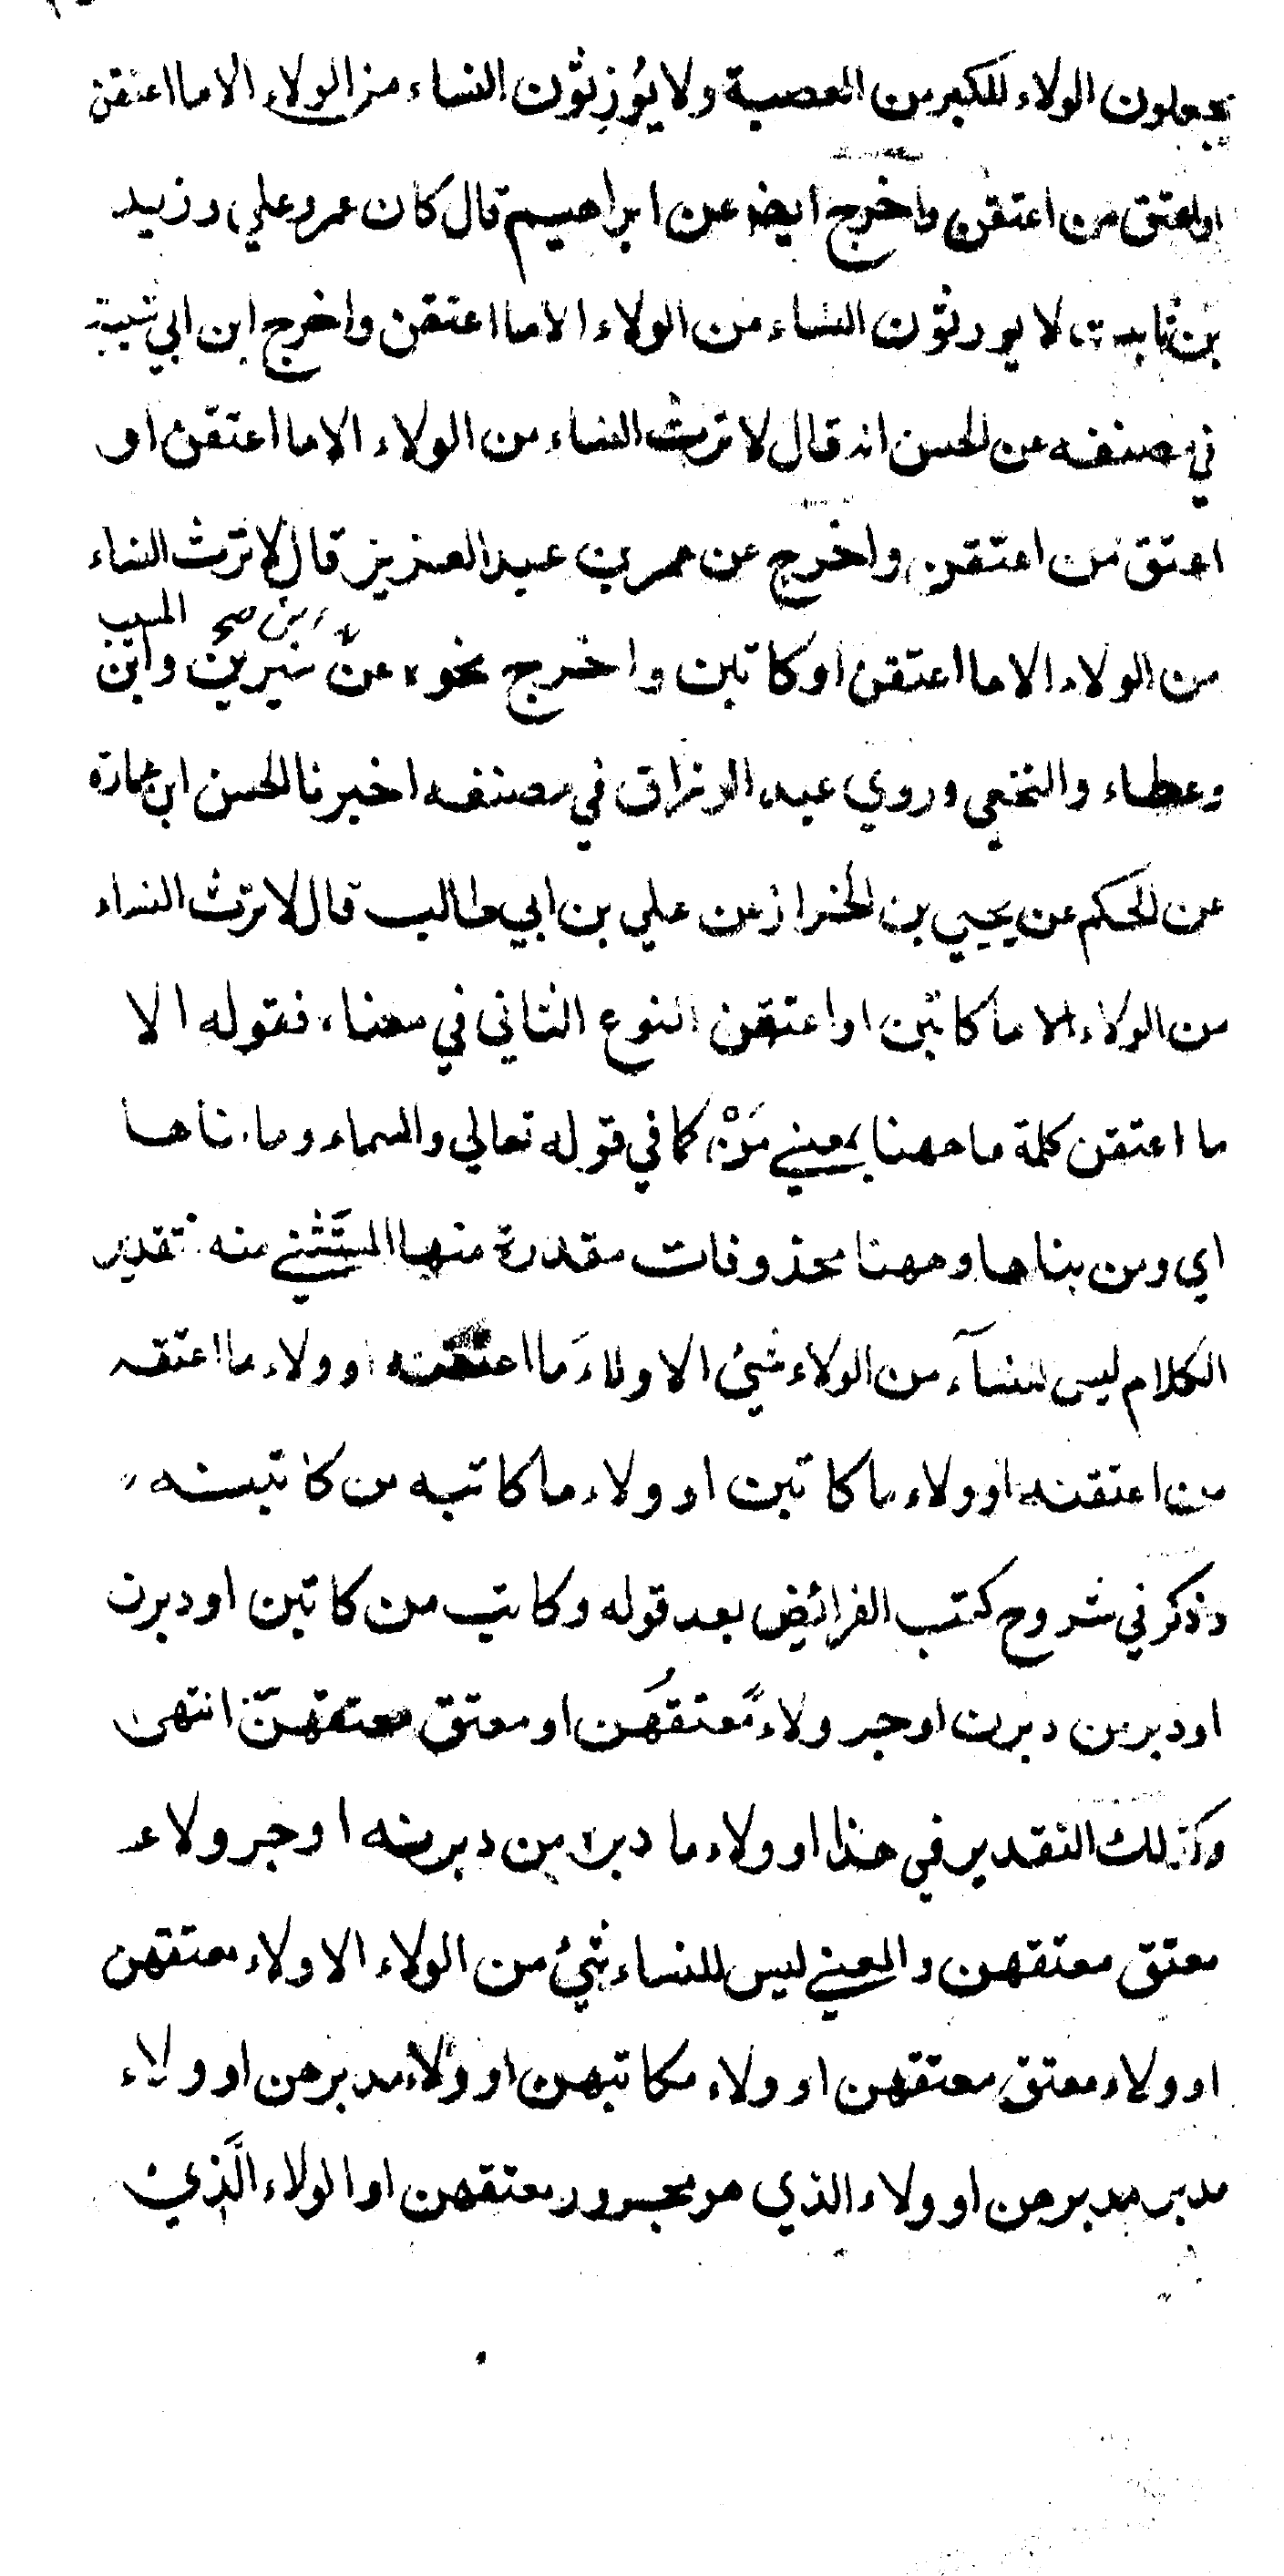 يجعلون الولاء للكبر من العصبة ولا يُوَرِثون النساء من الولاء الا ما اعتقن
او اعتق من اعتقن واخرج ايضا عن ابراهيم قال كان عمر وعلي وزيد
بن ثابت لا يورثون النساء من الولاء الا ما اعتقن واخرج ابن ابي شيبة
في مصنفه عن الحسن انه قال لا ترث النساء من الولاء الا ما اعتقن او
اعتق من اعتقن واخرج عن عمر بن عبد العزيز قال لا ترث النساء
ابن صح المسيب
من الولاء الا ما اعتقن او كاتبن واخرج نحوه عن سيرين وابن
وعطاء والنخعي وروي عبد الرزاق في مصنفه اخبرنا الحسن ابن عمارة
عن الحكم عن يحيي بن الخزاز عن علي بن ابي طالب قال لا ترث النساء
من الولاء الا ما كاتبن او اعتقن النوع الثاني في معناه فقوله الا
ما اعتقن كلمة ما ههنا بمعني مَنْ كما في قوله تعالي والسماء وما بناها
اي ومن بناها وههنا محذوفات مقدرة منها المستَثني منه تقدير
الكلام ليس للنسآء من الولاء شيئ الا ولاءَ ما اعتقنه او ولاء ما اعتقه
من اعتقنه او ولاء ما كاتبن او ولاء ما كاتبه من كاتبنه
وذكر في شروح كتب الفرائض بعد قوله وكاتب من كاتبن او دبرن
او دبر من دبرن او جر ولاء مُعتقُهن او معتق معتقهنّ انتهى
وكذلك التقدير في هذا او ولاء ما دبره من دبرنه او جر ولاء
معتق معتقهن والمعني ليس للنساء شيئ من الولاء الا ولاء معتقهن
او ولاء معتق معتقهن او ولاء مكاتبهن او ولاء مدبرهن او ولاء
مدبر مدبرهن او ولاء الذي هو مجرور معتقهن او الولاء الَّذي